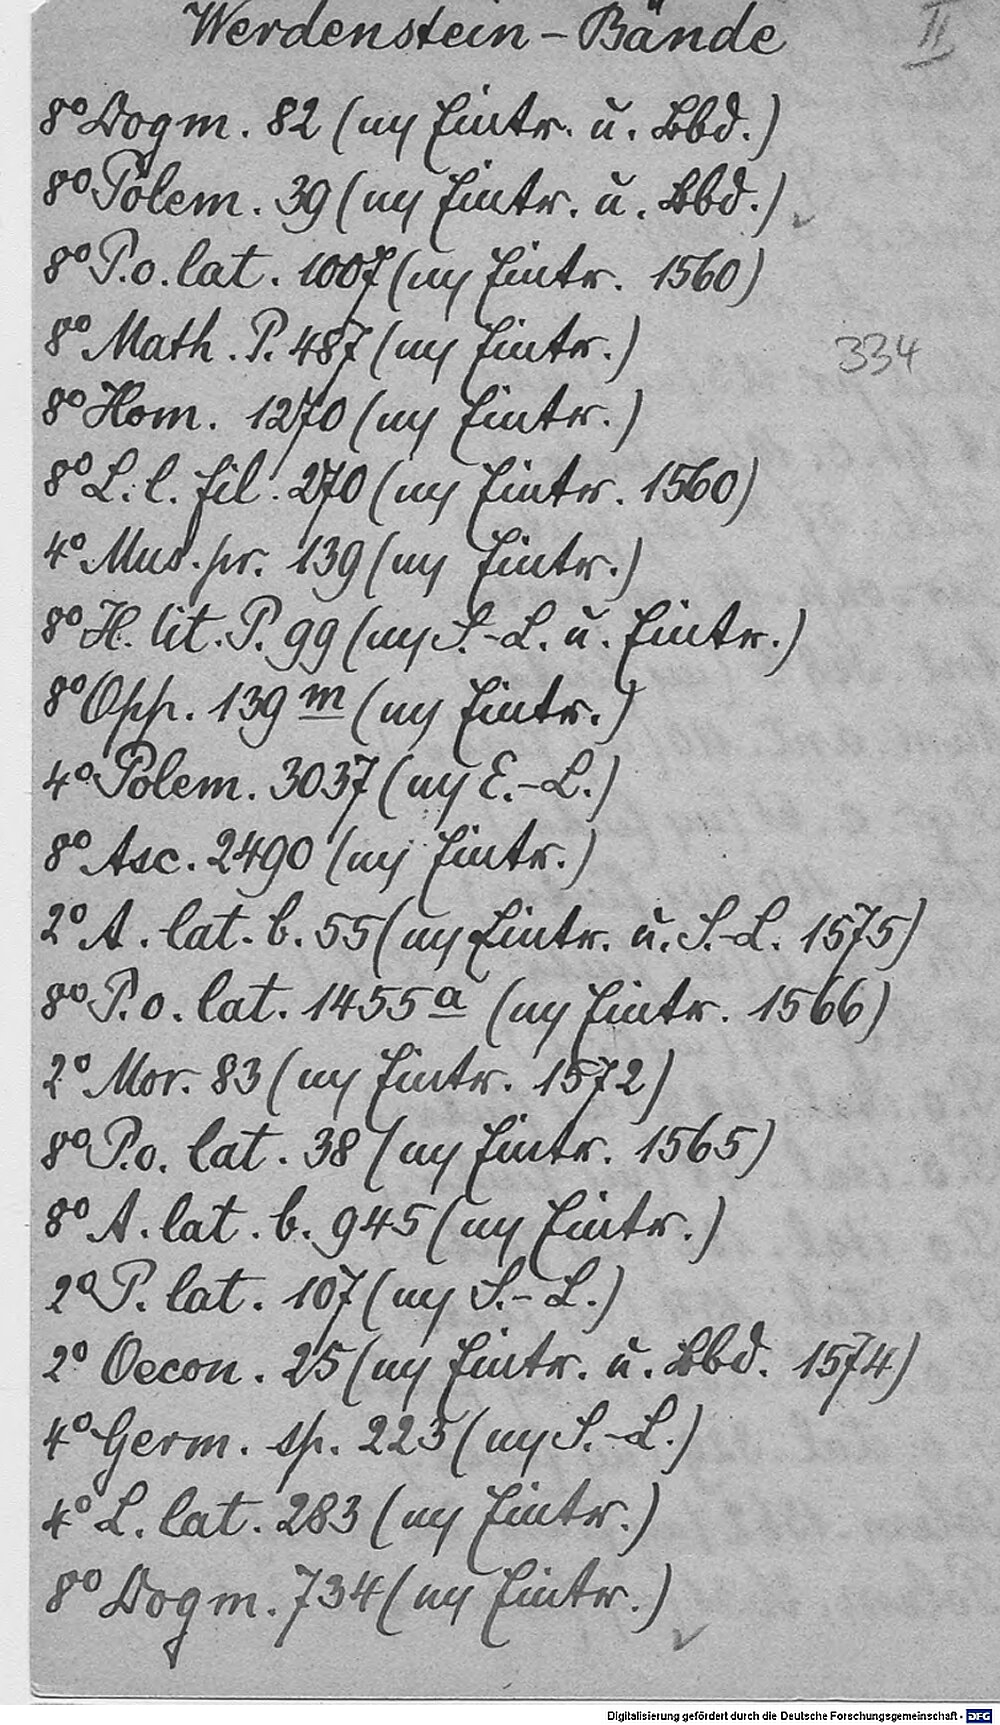 Werdenstein-Bände
II
8° Dogm. 82 (m Eintr. u. Bbd.)
8° Polem. 39 (m Eintr. u. Bbd.)
8° P.o. lat. 1007 (m Eintr. 1560)
8° Math. P. 487 (m Eintr.)
334
8° Hom. 1270 (m Eintr.)
8° L. l. fil. 270 (m Eintr. 1560)
4° Mus. pr. 139 (m Eintr.)
8° H. lit. P. 99 (m S.-L. u. Eintr.)
8° Opp. 139 m (m Eintr.)
4° Polem. 3037 (m E.-L.)
8° Asc. 2490 (m Eintr.)
2° A. lat. b. 55 (m Eintr. u. S.-L. 1575)
8° P. o. lat. 1455 a (m Eintr. 1566)
2° Mor. 83 (m Eintr. 1572)
8° P.o. lat. 38 (m Eintr. 1565)
8° A. lat. b. 945 (m Eintr.)
2° P. lat. 107 (m S.-L.)
2° Oecon. 25 (m Eintr. u. Bbd. 1574)
4° Germ. sp. 223 (m S.-L.)
4° L. lat. 283 (m Eintr.)
8° Dogm. 734 (m Eintr.)
Digitalisierung gefördert durch die Deutsche Forschungsgemeinschaft - DFG